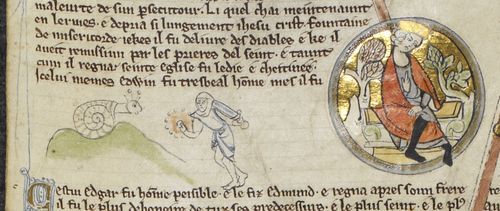 maleurte de sun p̃secutour. Li quel chai meintenaunt
en lermes. e depria si lungement ihesu crist fountaine
de misericorde. ke les il fu delivre des diables e ke il
aueit remissiun par les prieres del seint. e taunt
cum il regna seinte eglise fu ledie e cheitiue.
icelui memes edwin fu tresbeal home mes il fu
Cestui edgar fu home peisible. e le fiz edmund. e regna apres soun frere
il fu le plus de honour de tuz ses predecessurs. e le plus seint. e le pl9